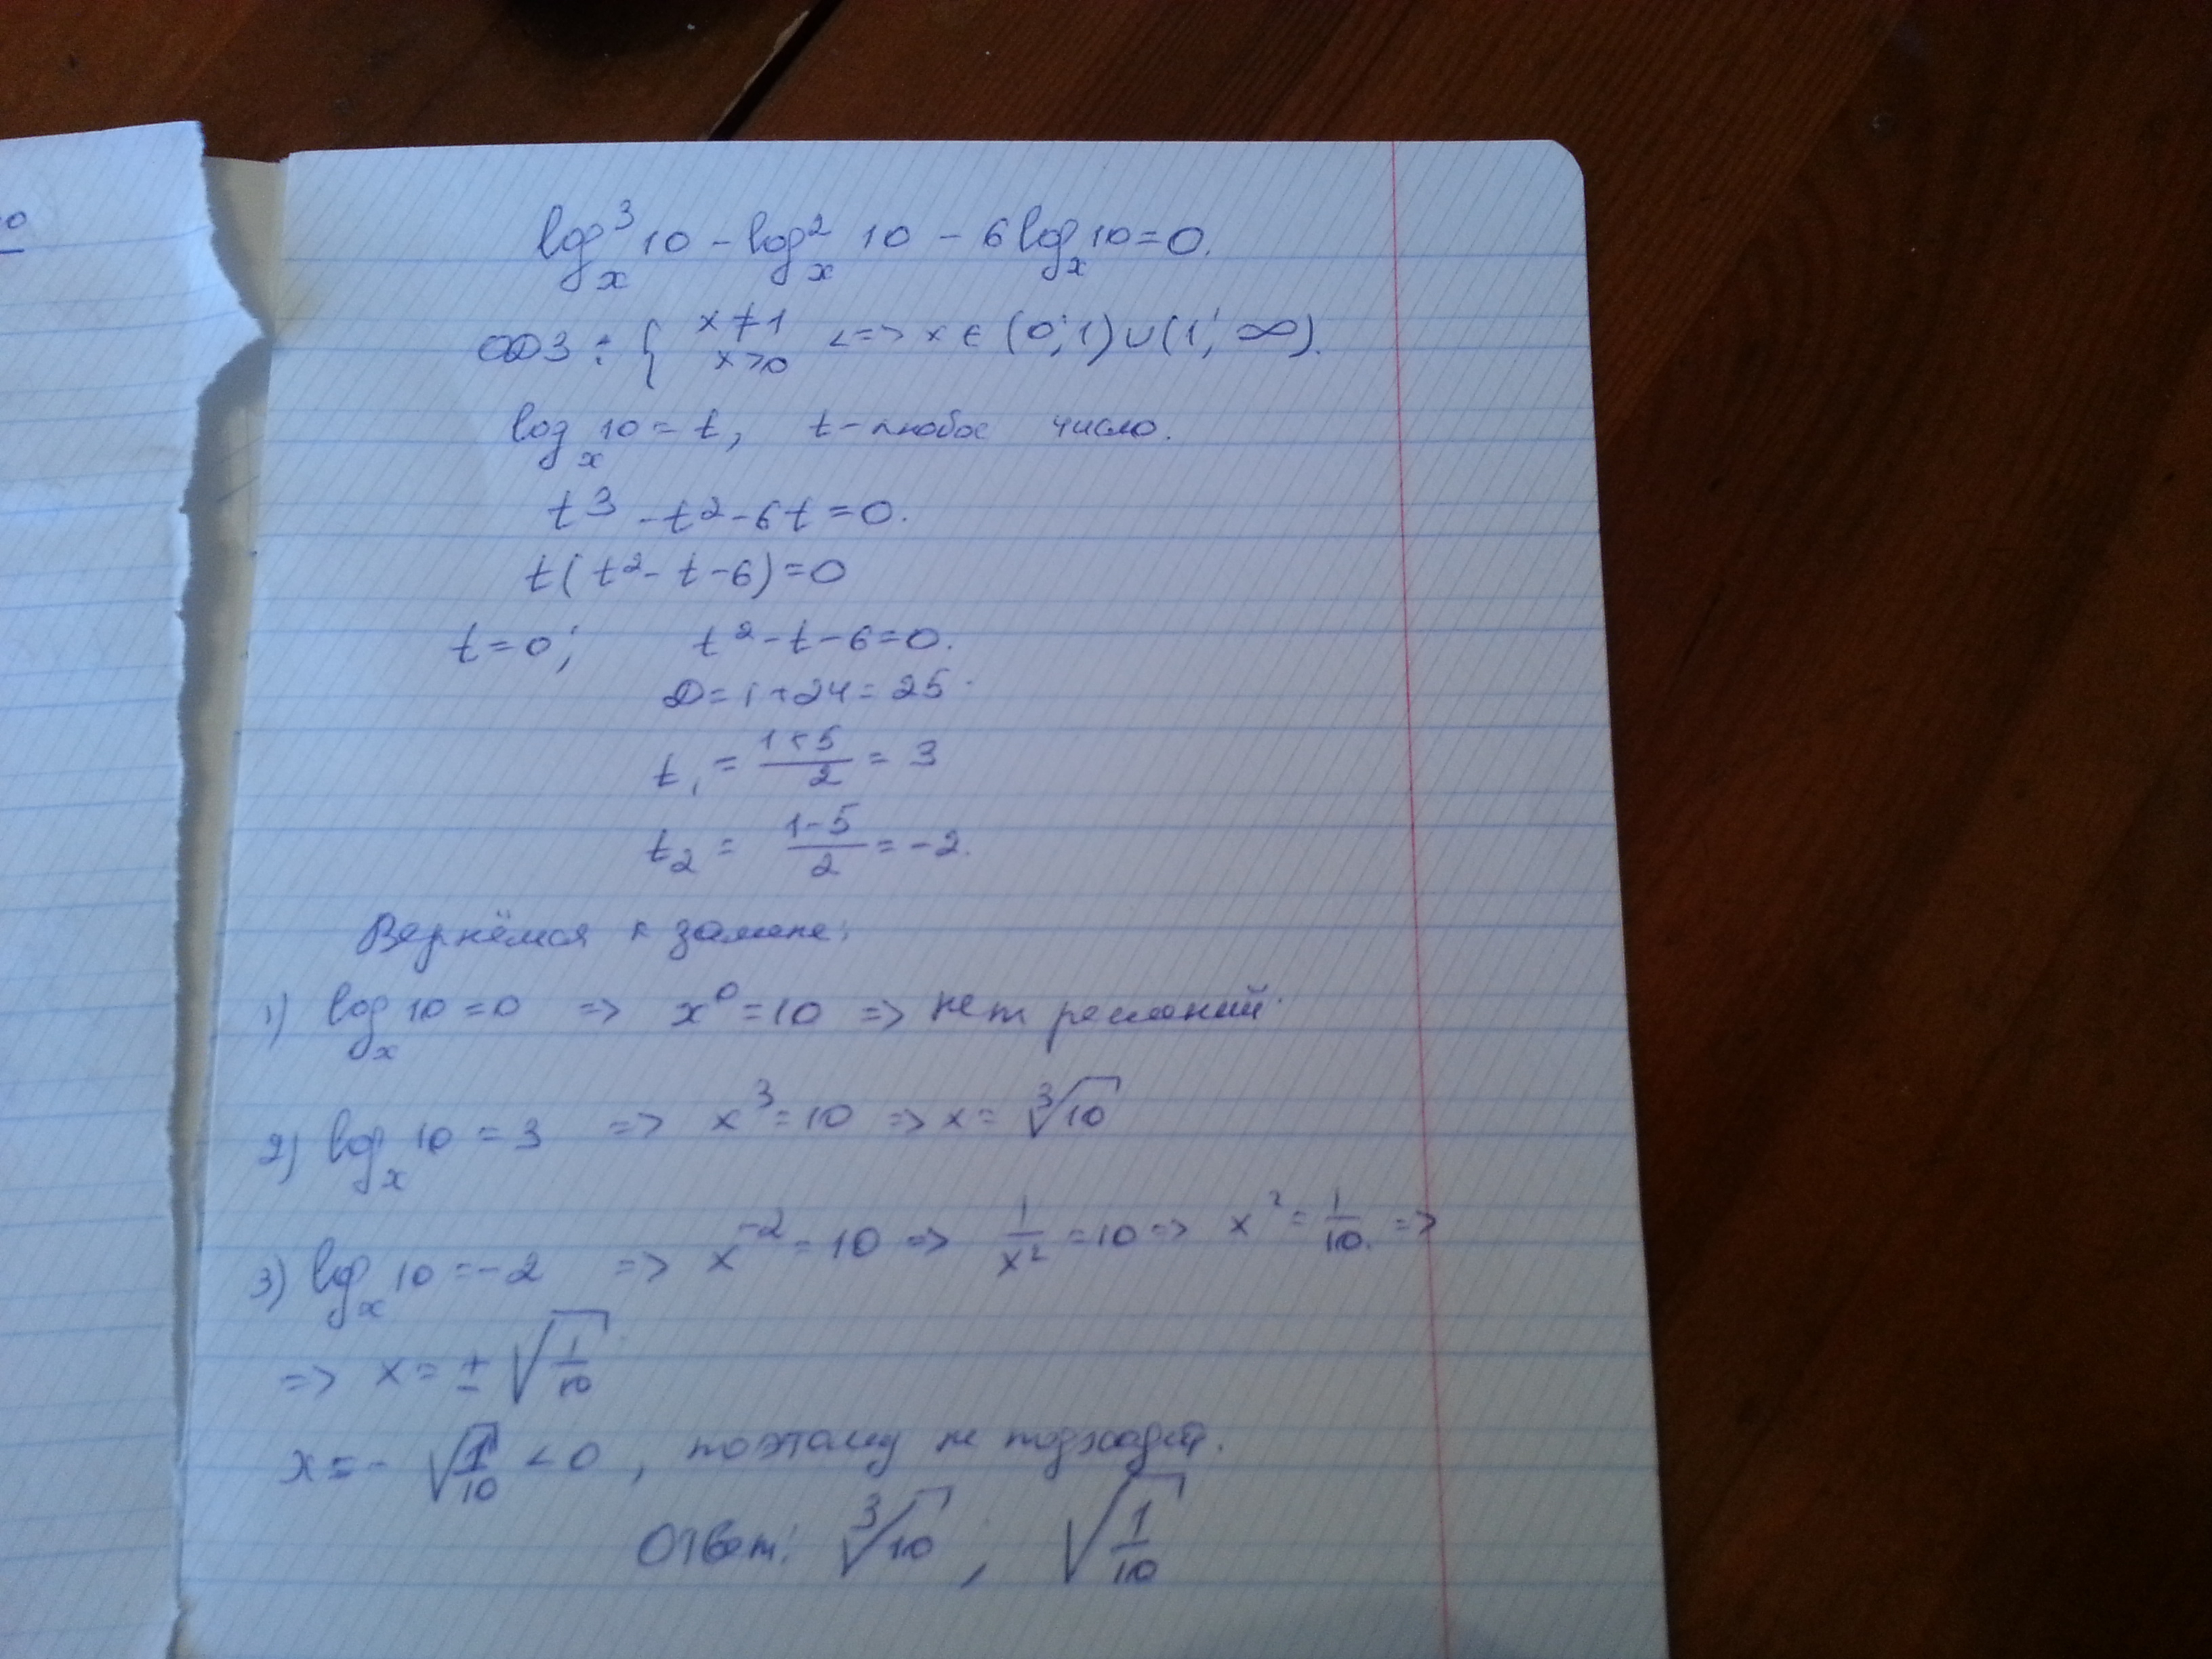 log³ₓ 10 - log²ₓ 10 - 6 logₓ 10 = 0.
ОДЗ: { x ≠ 1 x > 0 <=> x ∈ (0; 1) ∪ (1; ∞).
logₓ 10 = t, t - любое число.
t³ - t² - 6t = 0.
t(t² - t - 6) = 0
t = 0; t² - t - 6 = 0.
D = 1 + 24 = 25.
t₁ = (1+5)/2 = 3
t₂ = (1-5)/2 = -2.
Вернёмся к замене:
1) logₓ 10 = 0 => x⁰ = 10 => нет решений.
2) logₓ 10 = 3 => x³ = 10 => x = ³√10
3) logₓ 10 = -2 => x⁻² = 10 => 1/x² = 10 => x² = 1/10. =>
=> x = ± √(1/10)
x = - √(1/10) < 0, поэтому не подходит.
Ответ: ³√10, √(1/10)